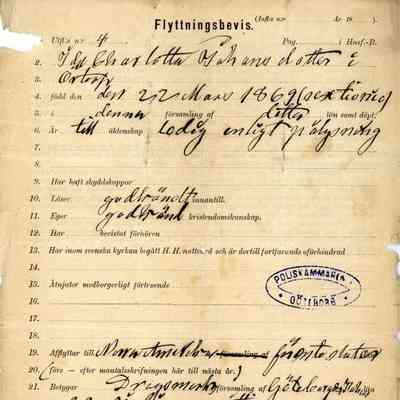 (Införn:r År 18 ).
Flyttningsbevis.
1. Utfl:s n:r 4 Pag. i Husf.-B.
2. Ida Charlotta Johansdotter i
3. Ortorp
4. född den 22 Mars 1869 (sextionio)
5. i denna församling af detta län samt döpt.
6. Är till äktenskap ledig enligt pålysning
7.
8.
9. Har haft skyddskoppor
10. Läser godkändt innantill.
11. Eger godkänd kristendomskunskap.
12. Har bevistat förhören
13. Har inom svenska kyrkan begått H. H. nattvard och är dertill fortfarande oförhindrad
14.
15. Åtnjuter medborgerligt förtroende
16.
17.
18.
POLISKAMMAREN
GÖTEBORG
19. Afflyttar till Norra Amerikas församling af förenta stater
20. (före – efter mantalsskrifningen här till nästa år.)
21. Betygar Dragsmark församling af Göteborgs